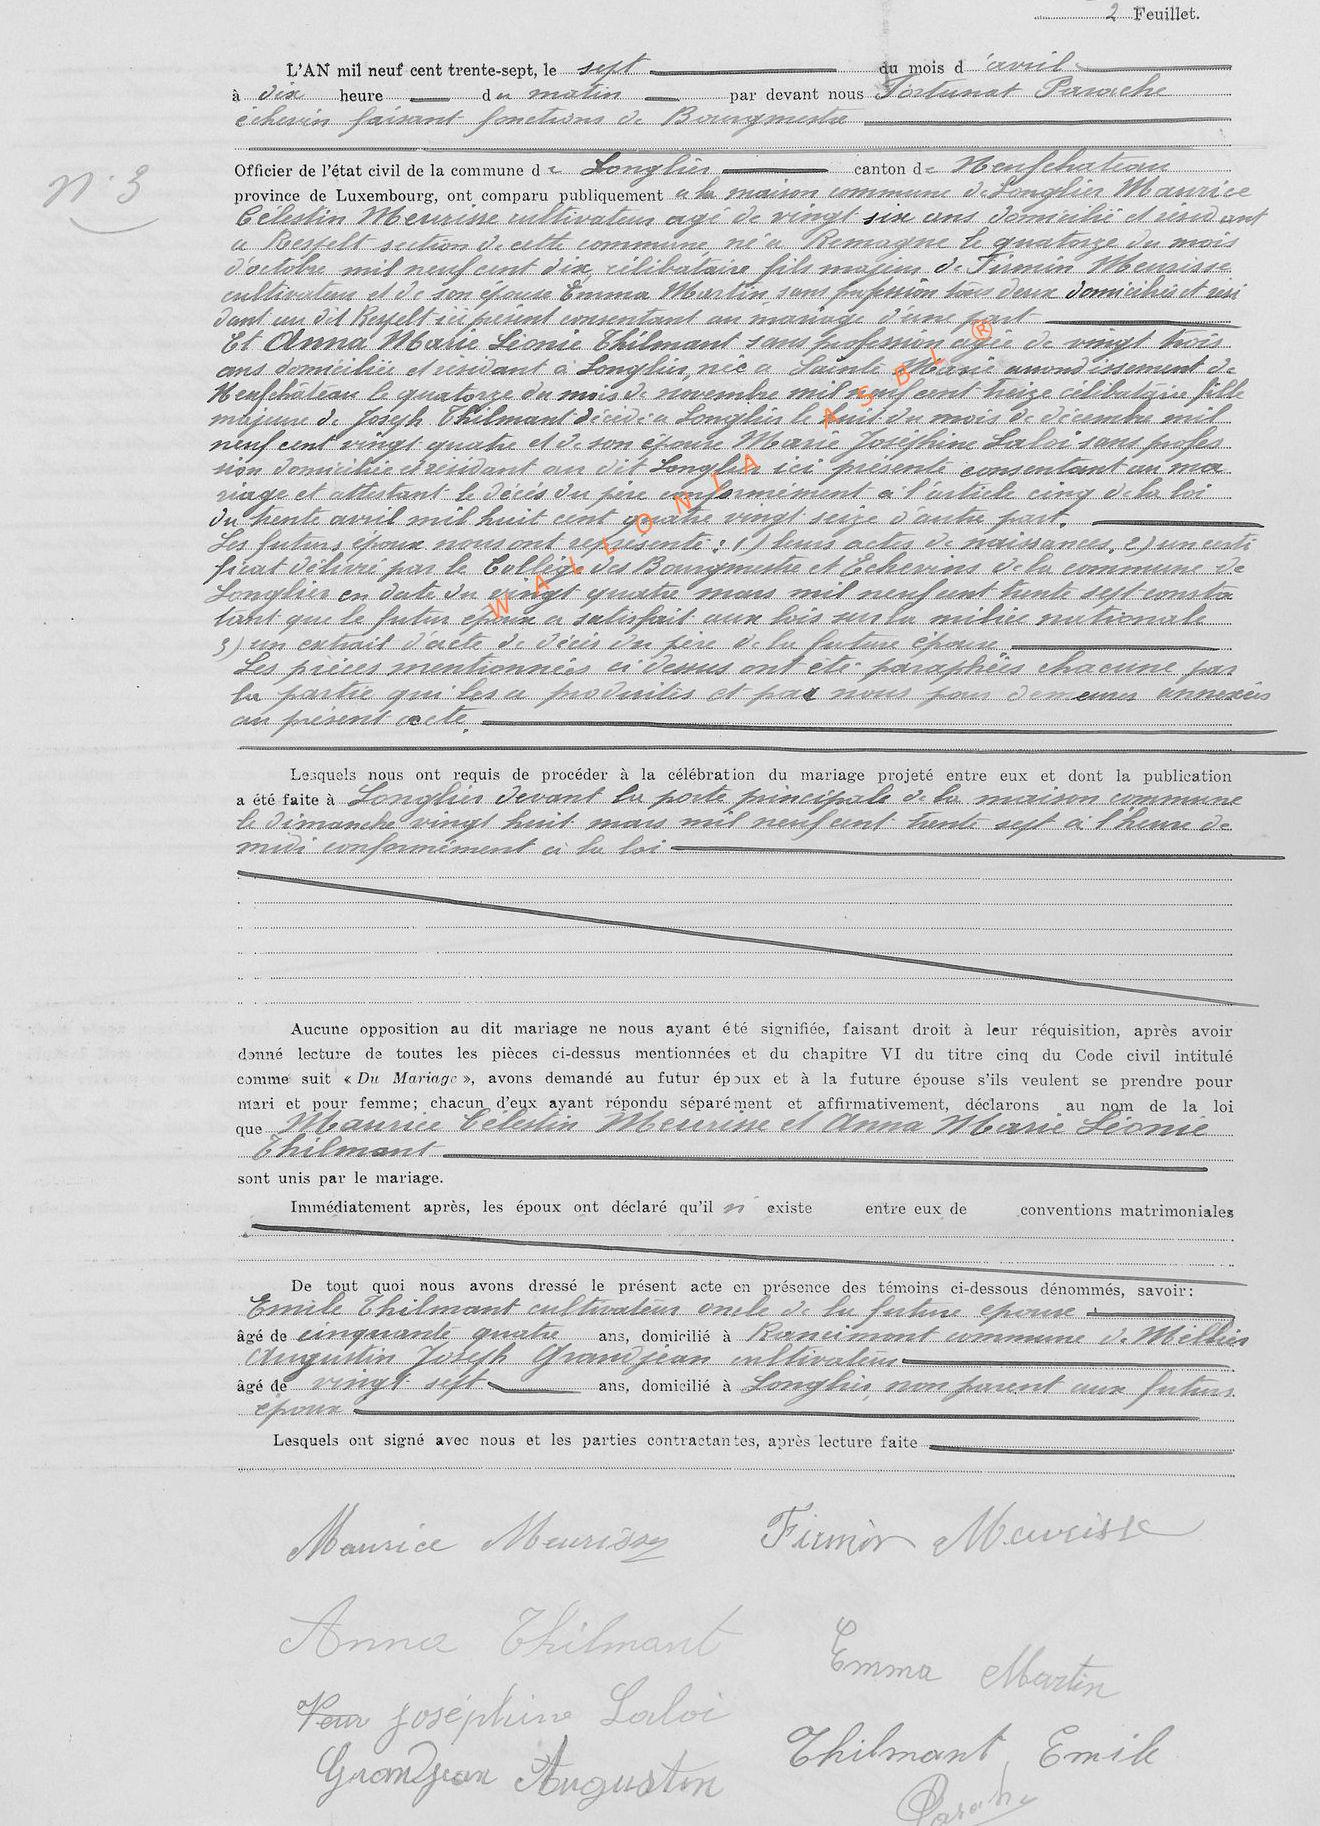 2 Feuillet.
L'AN mil neuf cent trente-sept, le sept du mois d'avril
à dix heure du matin par devant nous Fortunat Parache
échevin faisant fonctions de Bourgmestre
N° 3
Officier de l'état civil de la commune de Longlier canton de Neufchateau
province de Luxembourg, ont comparu publiquement a la maison commune de Longlier Maurice
Célestin Meurisse cultivateur agé de vingt six ans domicilié et résidant
a Respelt section de cette commune, né a Remagne le quatorze du mois
d'octobre mil neuf cent dix, célibataire fils majeur de Firmin Meurisse
cultivateur et de son épouse Emma Martin sans profession tous deux domiciliés et resi
dant au dit Respelt ici présent consentant au mariage d'une part
Et Anna Marie Léonie Thilmant sans profession agée de vingt trois
ans domiciliée et résidant a Longlier, née a Sainte Marie arrondissement de
Neufchâteau le quatorze du mois de novembre mil neuf cent treize célibataire fille
majeure de Joseph Thilmant décédé a Longlier le huit du mois de décembre mil
neuf cent vingt quatre et de son épouse Marie Joséphine Laloi sans profes
sion domiciliée et résidant au dit Longlier ici présente consentant au ma
riage et attestant le décès du père conformément a l'article cinq de la loi
du trente avril mil huit cent quatre vingt seize d'autre part.
Les futurs époux nous ont représenté : 1) leurs actes de naissances, 2) un certi
ficat délivré par le Collège des Bourgmestre et Echevins de la commune de
Longlier en date du vingt quatre mars mil neuf cent trente sept consta
tant que le futur epoux a satisfait aux lois sur la milice nationale
3) un extrait d'acte de décès du père de la future épouse
Les pièces mentionnées ci dessus ont été paraphées chacune par
la partie qui les a produites et par nous pour demeurer annexées
au présent acte.
WALLONIA ASBL ®
Lesquels nous ont requis de procéder à la célébration du mariage projeté entre eux et dont la publication
a été faite à Longlier devant la porte principale de la maison commune
le dimanche vingt huit mars mil neuf cent trente sept à l'heure de
midi conformément à la loi
Aucune opposition au dit mariage ne nous ayant été signifiée, faisant droit à leur réquisition, après avoir
donné lecture de toutes les pièces ci-dessus mentionnées et du chapitre VI du titre cinq du Code civil intitulé
comme suit « Du Mariage », avons demandé au futur époux et à la future épouse s'ils veulent se prendre pour
mari et pour femme; chacun d'eux ayant répondu séparément et affirmativement, déclarons au nom de la loi
que Maurice Célestin Meurisse et Anna Marie Léonie
Thilmant
sont unis par le mariage.
Immédiatement après, les époux ont déclaré qu'il n'existe entre eux de conventions matrimoniales
De tout quoi nous avons dressé le présent acte en présence des témoins ci-dessous dénommés, savoir:
Emile Thilmant cultivateur oncle de la future epouse
âgé de cinquante quatre ans, domicilié à Rancimont commune de Mellier
Augustin Joseph Grandjean cultivateur
âgé de vingt sept ans, domicilié à Longlier, non parent aux futurs
époux
Lesquels ont signé avec nous et les parties contractantes, après lecture faite
Maurice Meurisse Firmin Meurisse
Anna Thilmant Emma Martin
Joséphine Laloi
Thilmant Emile
Grandjean Augustin
Parache